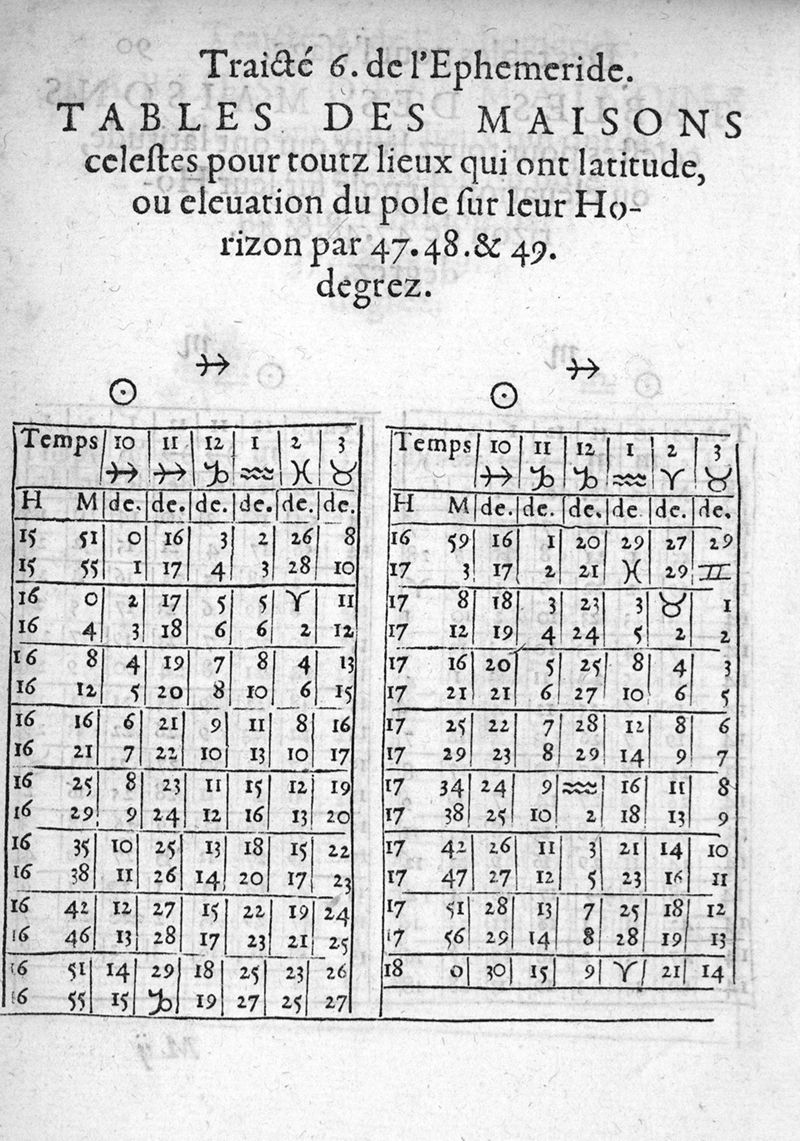 Traicté 6. de l'Ephemeride.
TABLES DES MAISONS
celeſtes pour toutz lieux qui ont latitude,
ou eleuation du pole ſur leur Ho-
rizon par 47. 48. & 49.
degrez.
♐
☉
Temps 10 11 12 1 2 3
♐ ♐ ♑ ♒ ♓ ♉
H M de. de. de. de. de. de.
15 51 0 16 3 2 26 8
15 55 1 17 4 3 28 10
16 0 2 17 5 5 ♈ 11
16 4 3 18 6 6 2 12
16 8 4 19 7 8 4 13
16 12 5 20 8 10 6 15
16 16 6 21 9 11 8 16
16 21 7 22 10 13 10 17
16 25 8 23 11 15 12 19
16 29 9 24 12 16 13 20
16 35 10 25 13 18 15 22
16 38 11 26 14 20 17 23
16 42 12 27 15 22 19 24
16 46 13 28 17 23 21 25
16 51 14 29 18 25 23 26
16 55 15 ♑ 19 27 25 27
♐
☉
Temps 10 11 12 1 2 3
♐ ♑ ♑ ♒ ♈ ♉
H M de. de. de. de de. de.
16 59 16 1 20 29 27 29
17 3 17 2 21 ♓ 29 ♊
17 8 18 3 23 3 ♉ 1
17 12 19 4 24 5 2 2
17 16 20 5 25 8 4 3
17 21 21 6 27 10 6 5
17 25 22 7 28 12 8 6
17 29 23 8 29 14 9 7
17 34 24 9 ♒ 16 11 8
17 38 25 10 2 18 13 9
17 42 26 11 3 21 14 10
17 47 27 12 5 23 16 11
17 51 28 13 7 25 18 12
17 56 29 14 8 28 19 13
18 0 30 15 9 ♈ 21 14